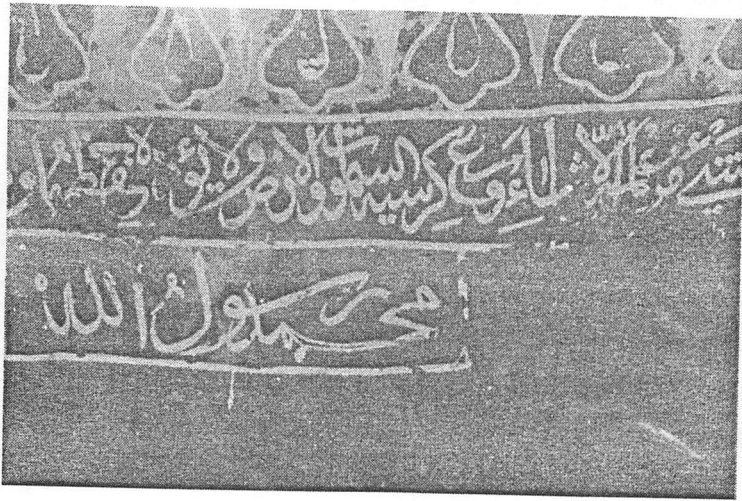 شيء من علمه الا شاء وسع كرسيه السموات والارض ولا يؤده حفظهما و
محمد رسول الله